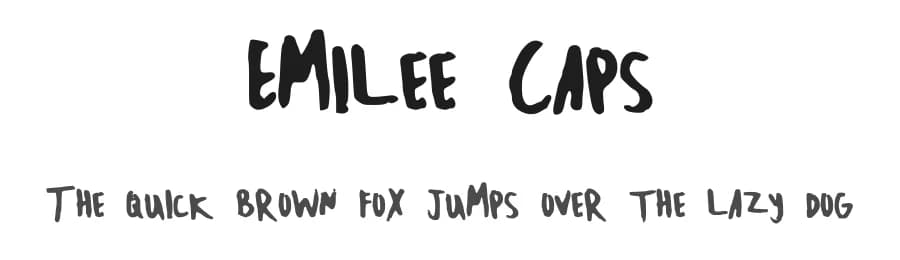 EMILEE CAPS
THE QUICK BROWN FOX JUMPS OVER THE LAZY DOG